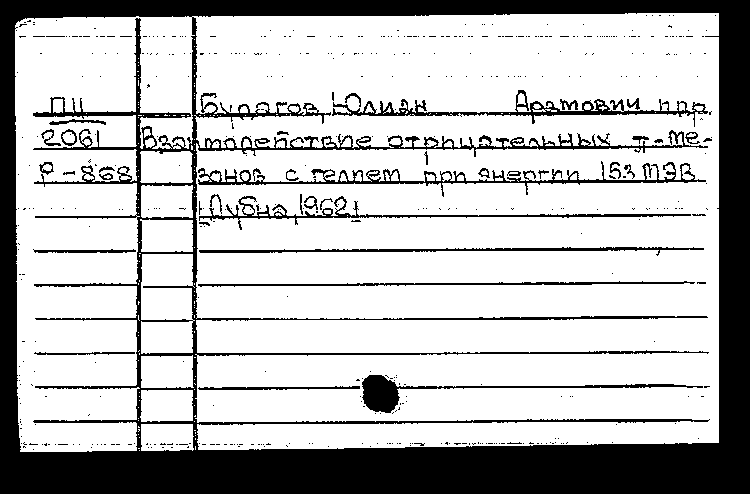 ПЦ Бурагов, Юлиан Аратович и др.
2061 Взаимодействие отрицательных π-ме-
Р-868 зонов с гелием при энергии 153 МЭВ
[Дубна, 1962]